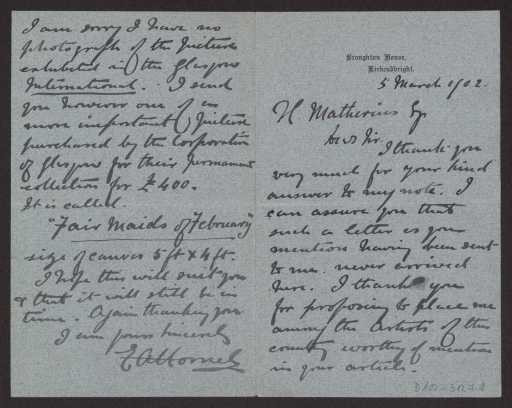 Broughton House,
Kirkcudbright.
5 March 1902.
H Matherius Esq
Dear Sir.
I thank you
very much for your kind
answer to my note. I
can assure you that
such a letter as you
mention having been sent
to me never arrived
here. I thank you
for proposing to place me
among the artists of this
country worthy of mention
in your article.
I am sorry I have no
photograph of the picture
exhibited in the Glasgow
International. I send
you however one of a
more important picture
purchased by the Corporation
of Glasgow for their permanent
collection for £400.
It is called.
"Fair Maids of February"
size of canvas 5 ft x 4 ft.
I hope this will suit you
& that it will still be in
time. Again thanking you
I am yours sincerely
E A Hornel